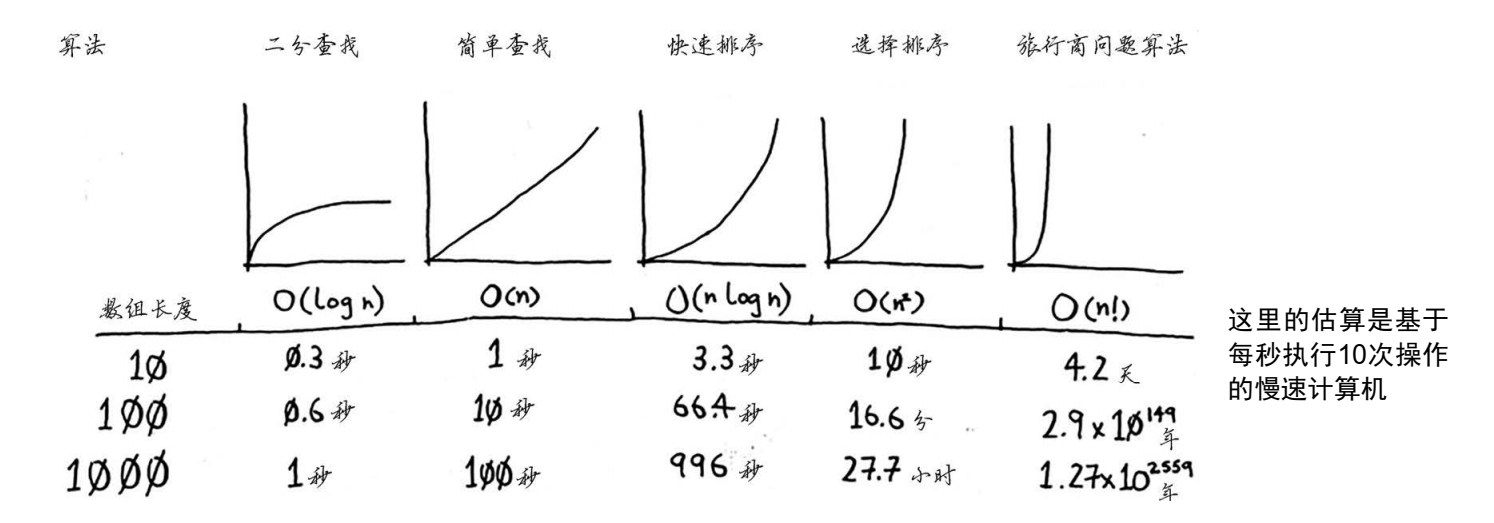 算法 二分查找 简单查找 快速排序 选择排序 旅行商问题算法
数组长度 O(log n) O(n) O(n log n) O(n²) O(n!)
10 0.3 秒 1 秒 3.3 秒 10 秒 4.2 天
100 0.6 秒 10 秒 66.4 秒 16.6 分 2.9x10¹⁴⁹ 年
1000 1 秒 100 秒 996 秒 27.7 小时 1.27x10²⁵⁵⁹ 年
这里的估算是基于
每秒执行10次操作
的慢速计算机